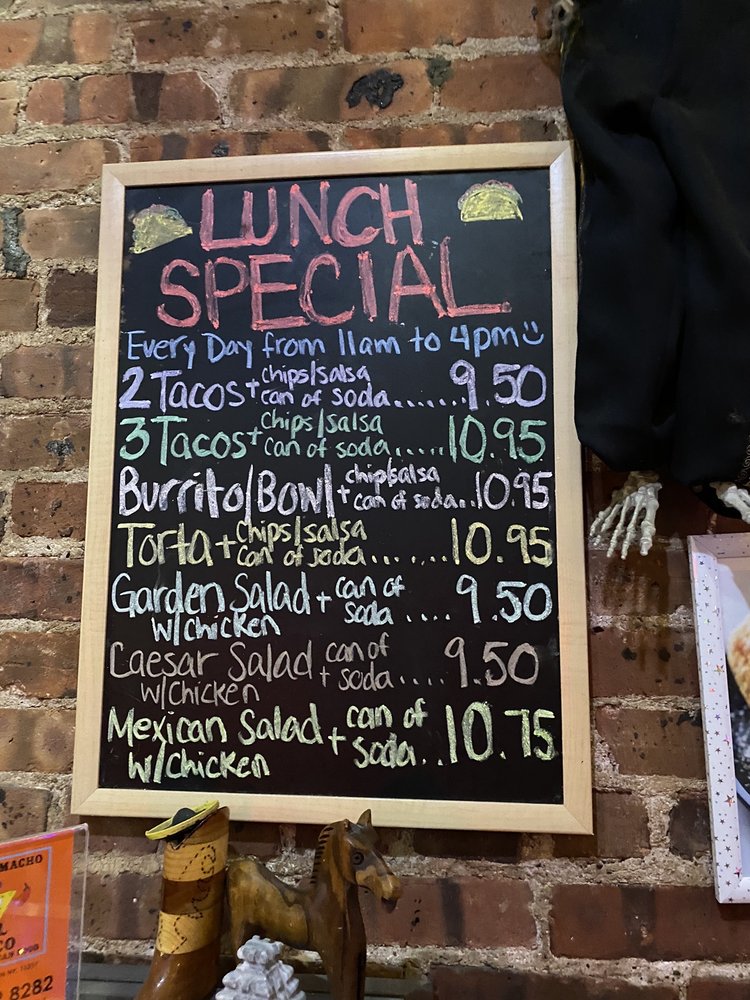 LUNCH
SPECIAL
Every Day from 11am to 4pm
2 Tacos + chips/salsa can of soda....... 9.50
3 Tacos + chips/salsa can of soda..... 10.95
Burrito/Bowl + chips/salsa can of soda.. 10.95
Torta + chips/salsa can of soda........ 10.95
Garden Salad + can of soda .... 9.50
w/chicken
Caesar Salad + can of soda.... 9.50
w/chicken
Mexican Salad + can of soda.. 10.75
w/chicken
MACHO
CO
8282